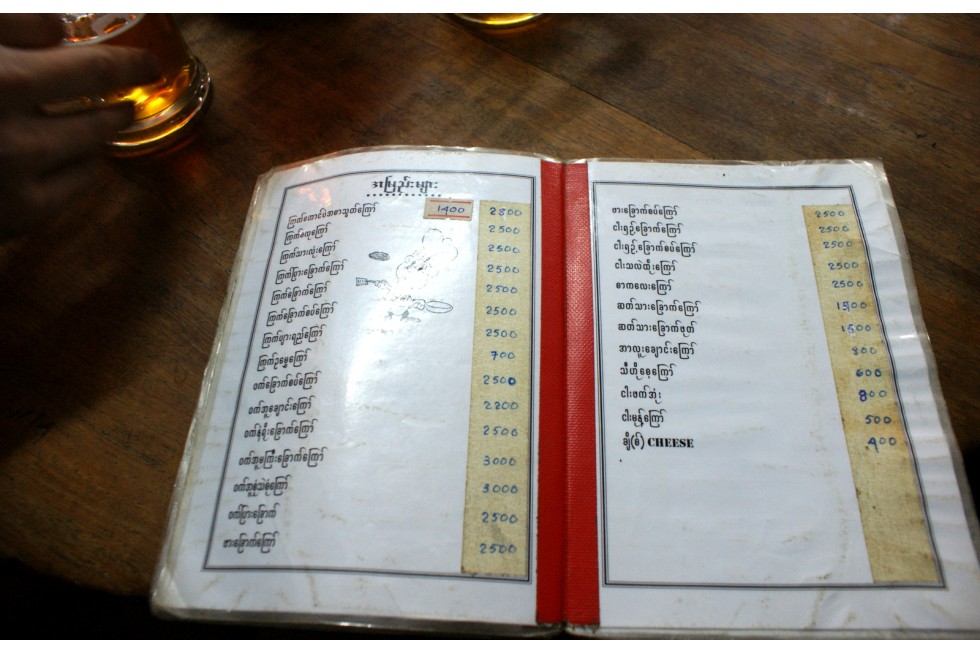 အမြည်းများ
ကြက်တောင်ပံအစာသွတ်ကြော် 1400 2800
ကြက်ခလုကြော် 2500
ကြက်သားလုံးကြော် 2500
ကြက်ပြားခြောက်ကြော် 2500
ကြက်ခြောက်ကြော် 2500
ကြက်ခြောက်စပ်ကြော် 2500
ကြက်ဖျားရည်ကြော် 2500
ကြက်ဥမွှေကြော် 700
ဝက်ခြောက်စပ်ကြော် 2500
ဝက်အူချောင်းကြော် 2200
ဝက်နံရိုးခြောက်ကြော် 2500
ဝက်အူမကြီးခြောက်ကြော် 3000
3000
ဝက်ပြားခြောက် 2500
ဖားခြောက်ကြော် 2500
ဖားခြောက်စပ်ကြော် 2500
ငါးရှဉ့်ခြောက်ကြော် 2500
ငါးရှဉ့်ခြောက်စပ်ကြော် 2500
ငါးသလဲထိုးကြော် 2500
စာကလေးကြော် 2500
ဆတ်သားခြောက်ကြော် 1500
ဆတ်သားခြောက်ဖုတ် 1500
အာလူးချောင်းကြော် 800
သီဟိုစေ့ကြော် 600
ငါးဖက်အုံး 800
ငါးမုန့်ကြော် 500
ချိ(စ်) CHEESE 400